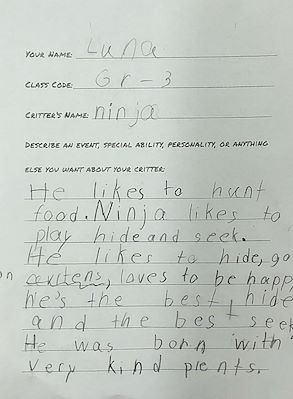 YOUR NAME: Luna
CLASS CODE: Gr-3
CRITTER'S NAME: ninja
DESCRIBE AN EVENT, SPECIAL ABILITY, PERSONALITY, OR ANYTHING
ELSE YOU WANT ABOUT YOUR CRITTER:
He likes to hunt
food. Ninja likes to
play hide and seek.
He likes to hide, go
on
loves to be happy
he's the best hide
and the best seek
He was born with
very kind